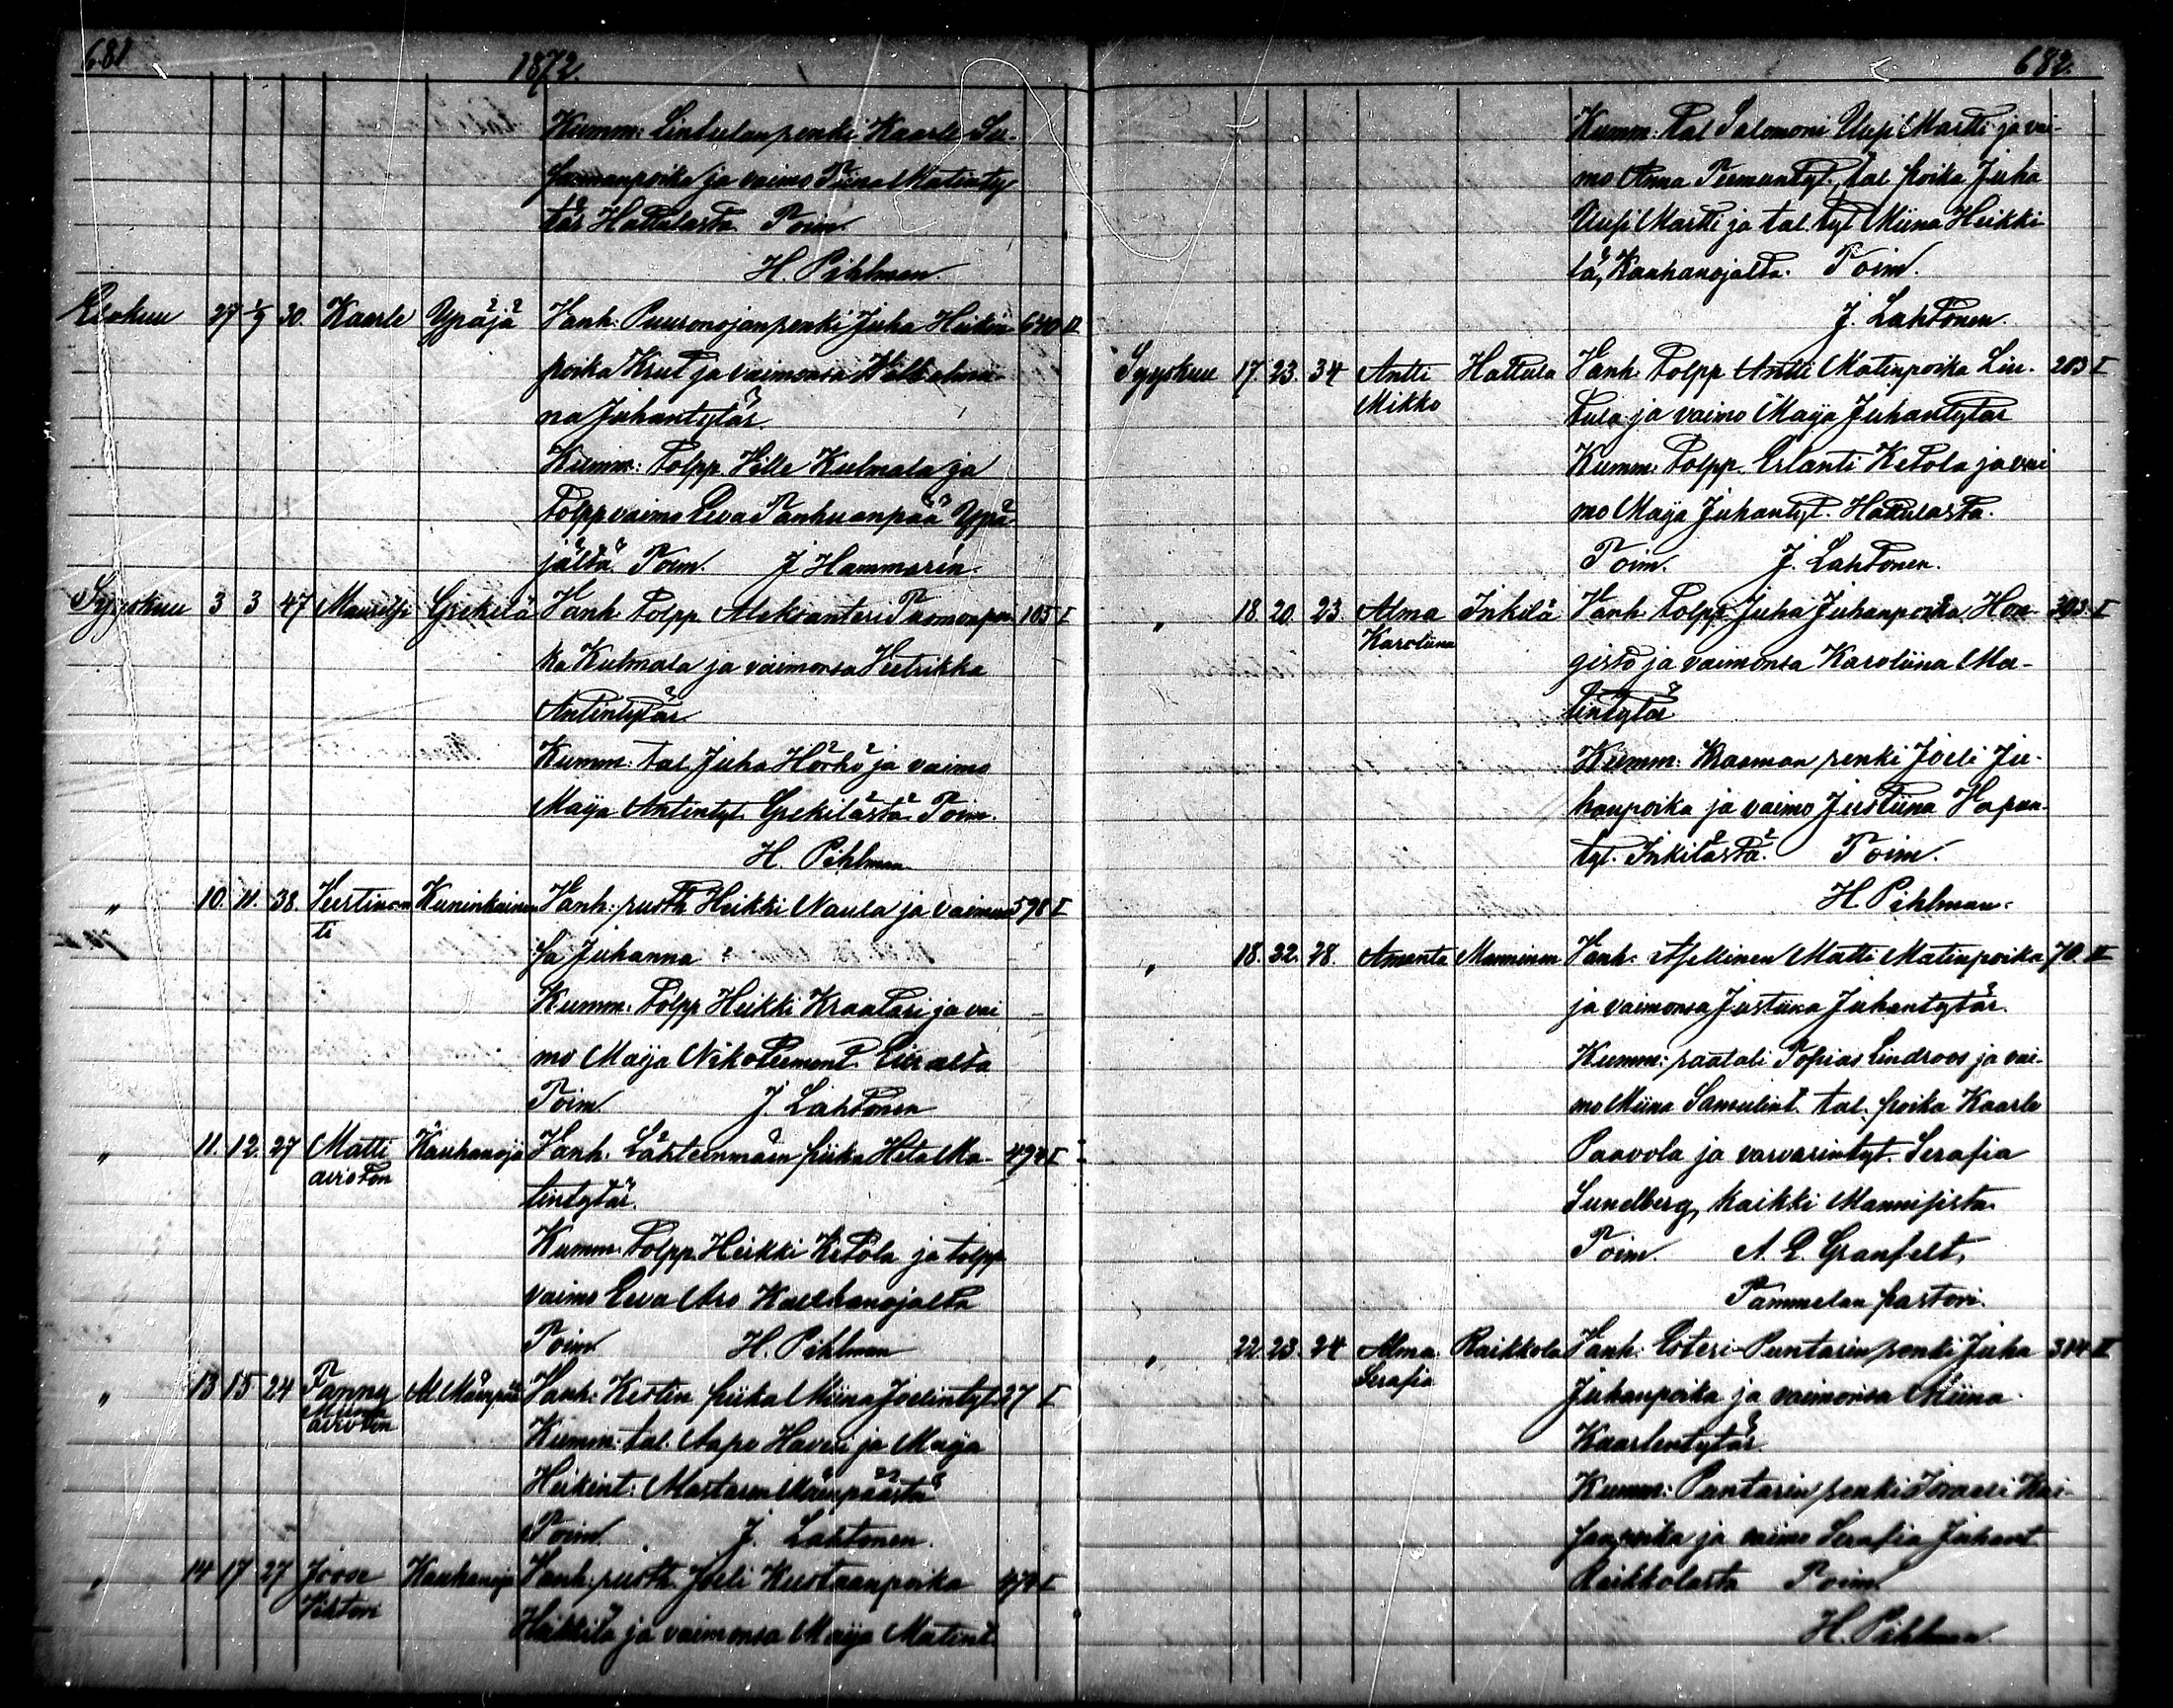 681
1872.
Kumm: Lintulan renki Kaarle Ju-
hananpoika ja vaimo Tiina Matinty
tär Hattulasta. Toim.
H. Pihlman.
Elokuu 27 1/9 30. Kaarle Ypäjä Vanh: Puuronojan renki Juha Heikin 640 II
poika Krut ja vaimonsa Wilhelmii-
na Juhantytär
Kumm: Tolpp. Wille Kulmala ja
Tolpp vaimo Eeva Tanhuanpää Ypä-
jältä. Toim. J Hammarén.
Syyskuu 3 3 47 Grekilä Vanh Tolpp. Aleksanteri Tuomanpoi- 105 I
ka Kulmala ja vaimonsa Vetrikka
Antintytär
Kumm: tal. Juha Hörkö ja vaimo
Maija Antintyt. Grekilästä. Toim.
H. Pihlman
" 10. 11. 38. Kuninkainen Vanh: rusth Heikki Naula ja vaimon 598 I
sa Juhanna
Kumm: Tolpp Heikki Kraatari ja vai
mo Maija
Toim. J Lahtonen
" 11. 12. 27 Matti Kauhanoja Vanh. Lähteenmäen piika Heta Ma- 494 I
avioton
tintytär.
Kumm. Tolpp. Heikki Ketola ja tolpp
vaimo Eeva Aro Kauhanojalta
Toim H. Pihlman
" 13 15 24 Fanny M Mäenpää Vanh: Kestin piika Miina Joelintyt. 27 I
Miina
avioton
Kumm: tal. Aapo Haveri ja Maija
Heikint: Martaren Mäenpäästä
Toim. J. Lahtonen.
" 14 17 27 Joose Kauhanoja Vanh: rusth. Joeli Kustaanpoika 474 I
Viktori
Heikkilä ja vaimonsa Maija Matint.
682.
Kumm: Tal Salomoni Uusi Martti ja vai-
mo Anna Teemuntyt., tal poika Juha
Uusi Martti ja tal. tyt Miina Heikki
lä, Kauhanojalta. Toim.
J. Lahtonen.
Syyskuu 17. 23. 34 Antti Hattula Vanh Tolpp Antti Matinpoika Lin- 203 I
Mikko
tula ja vaimo Maija Juhantytär
Kumm: Tolpp. Erlanti Ketola ja vai
mo Maija Juhantyt. Hattulasta.
Toim. J. Lahtonen.
" 18. 20. 23. Alma Inkilä Vanh Tolpp Juha Juhanpoika Hon- 303 I
Karoliina
gisto ja vaimonsa Karoliina Ma-
tintytär
Kumm: Kraaman renki Joeli Ju-
hanpoika ja vaimo Justiina
tyt. Inkilästä. Toim.
H. Pihlman.
" 18. 22. 28. Amanta Manninen Vanh: Itsellinen Matti Matinpoika 70. II
ja vaimonsa Justiina Juhantytär.
Kumm: raatali Topias Lindroos ja vai-
mo Miina Samulint. tal. poika Kaarle
Paavola ja varvarintyt. Serafia
Sundberg, kaikki Mannisista
Toim. A. E. Granfelt,
Tammelan pastori.
" 22. 23. 24 Alma Raikkola Vanh: Esteri-Puntarin renki Juha 314 II
Serafia
Juhanpoika ja vaimonsa Miina
Kaarlentytär
Kumm: Puntarin renki Israeli Kai-
sanpoika ja vaimo Serafia Juhant
Raikkolasta Toim.
H. Pihlman